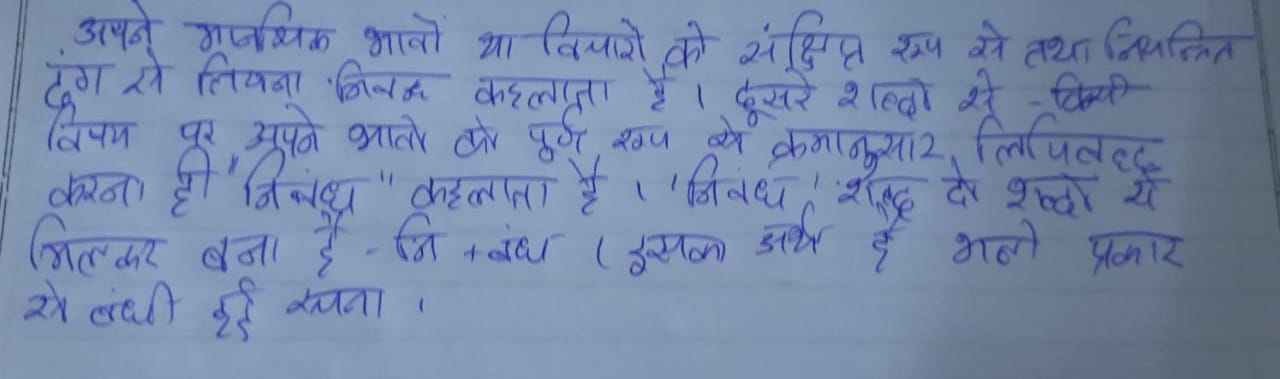 अपने मानसिक भावों या विचारों को संक्षिप्त रूप से तथा नियन्त्रित
ढंग से लिखना निबन्ध कहलाता है । दूसरे शब्दो से - किसी
विषय पर अपने भावो को पूर्ण रूप से क्रमानुसार लिपिबद्ध
करना ही "निबंध" कहलाता है । 'निबंध' शब्द दो शब्दो से
मिलकर बना है - नि + बंध । इसका अर्थ है भली प्रकार
से बंधी हुई रचना ।